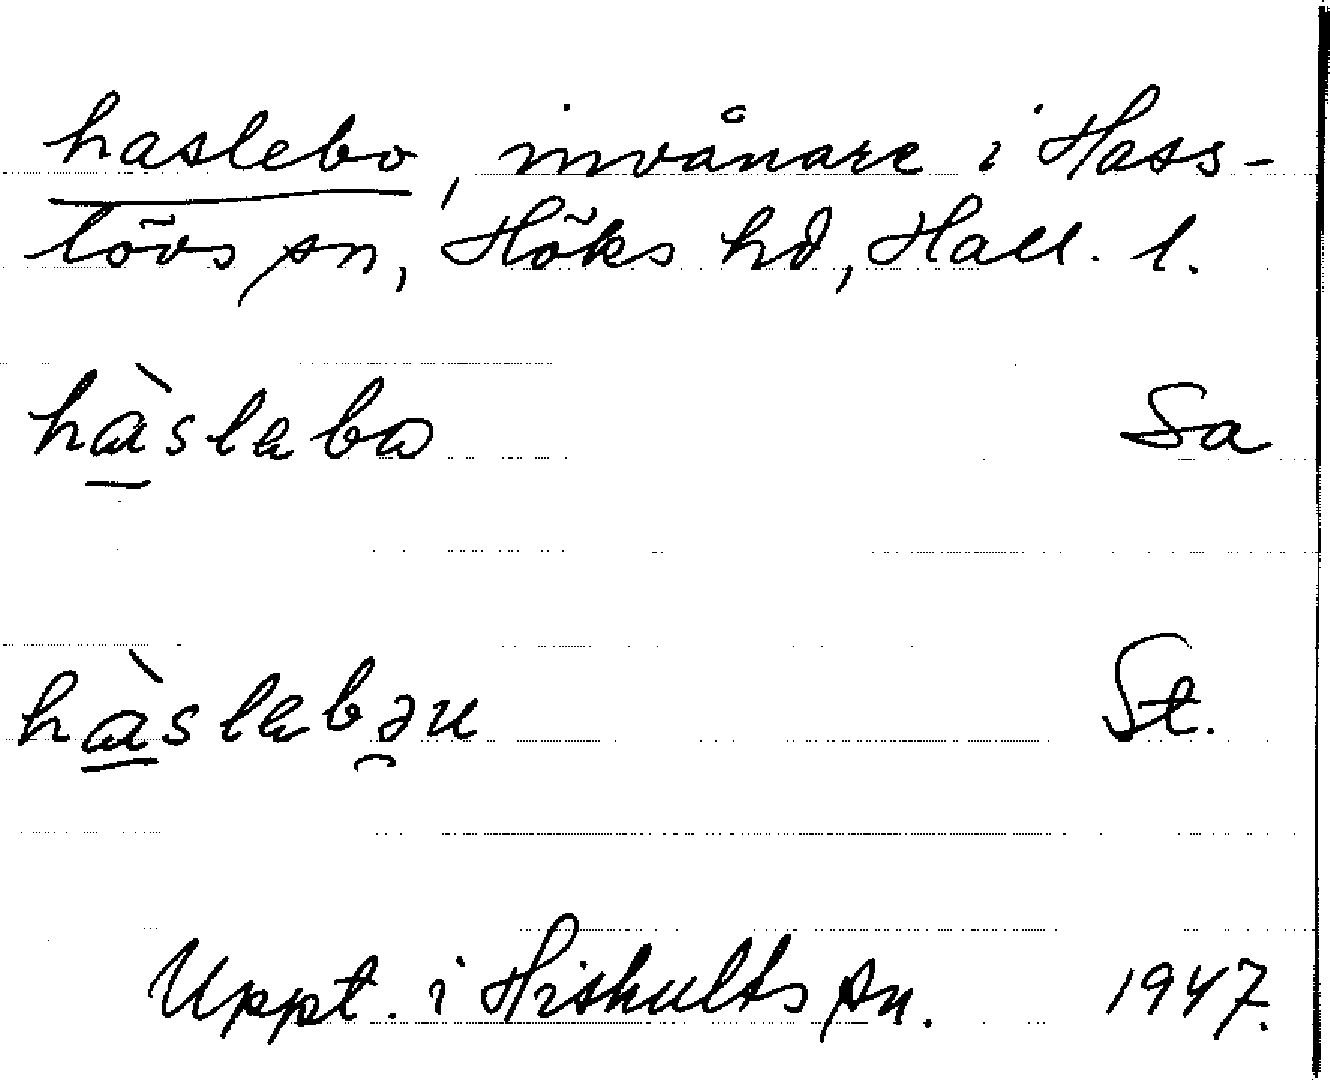 haslebo, invånare i Hass-
lövs sn, Höks hd, Hall. l.
hàslebo Sa
hàslebəu St.
Uppt. i Hishults sn. 1947.